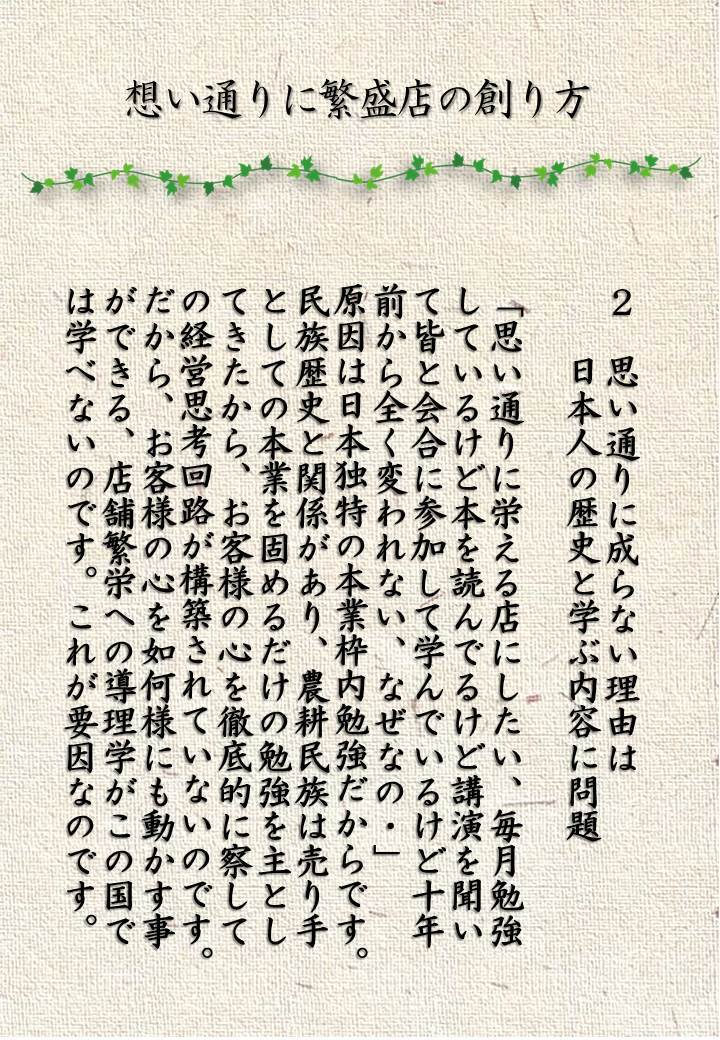 想い通りに繁盛店の創り方
２　思い通りに成らない理由は
日本人の歴史と学ぶ内容に問題
「思い通りに栄える店にしたい、毎月勉強
しているけど本を読んでるけど講演を聞い
て皆と会合に参加して学んでいるけど十年
前から全く変われない、なぜなの・」
原因は日本独特の本業枠内勉強だからです。
民族歴史と関係があり、農耕民族は売り手
としての本業を固めるだけの勉強を主とし
てきたから、お客様の心を徹底的に察して
の経営思考回路が構築されていないのです。
だから、お客様の心を如何様にも動かす事
ができる、店舗繁栄への導理学がこの国で
は学べないのです。これが要因なのです。